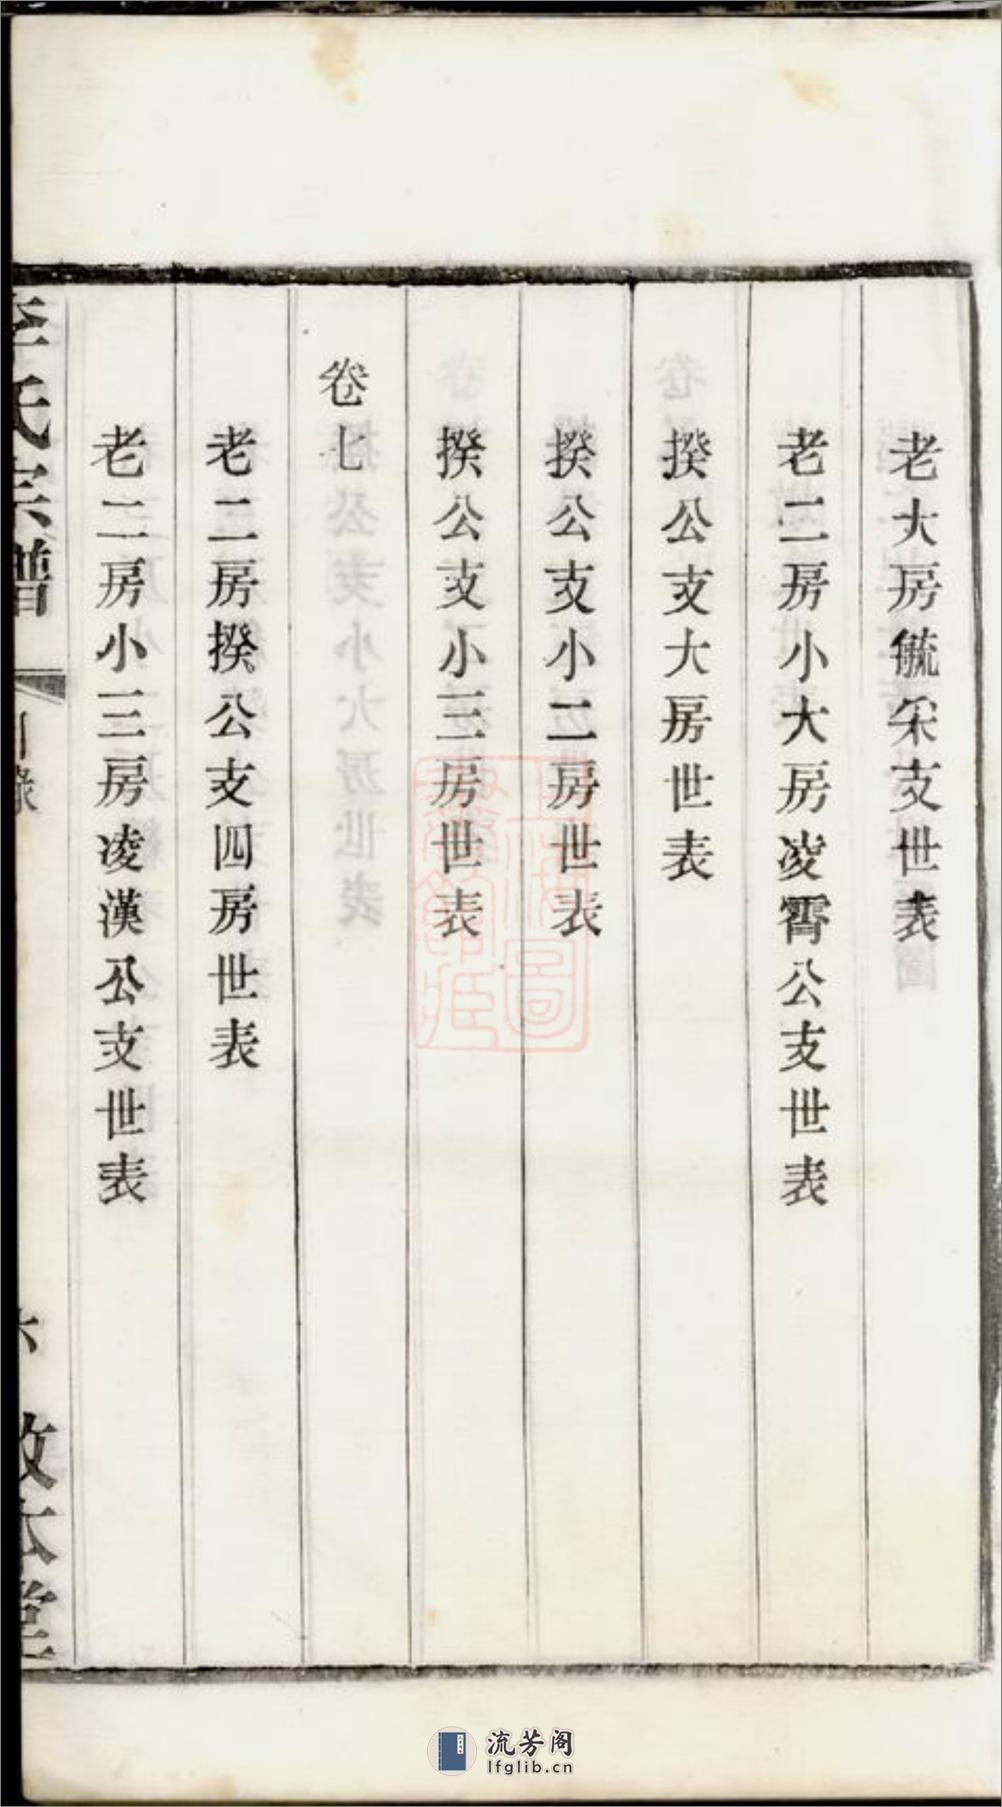 老大房毓宋支世表
老二房小大房凌霄公支世表
揆公支大房世表
揆公支小二房世表
揆公支小三房世表
卷七
老二房揆公支四房世表
老二房小三房凌漢公支世表
李氏宗譜
目錄
六
敦本堂
流芳阁
lfglib.cn